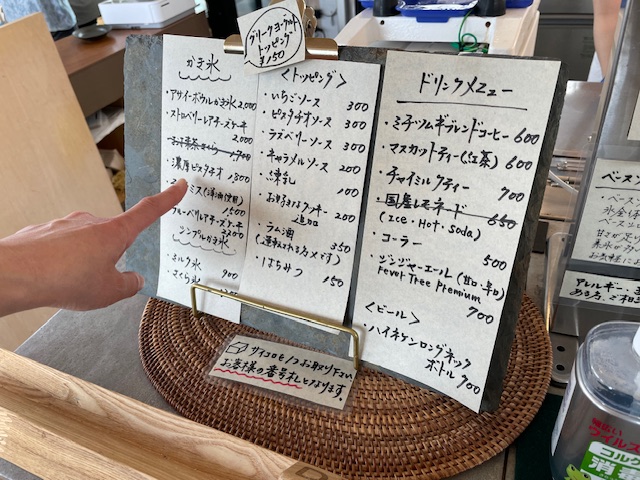 グリークヨーグルト
トッピング
¥150
かき氷
・アサイーボウルかき氷 2,000
・ストロベリーレアチーズケーキ
2,000
1,700
・濃厚ピスタチオ 1,800
1500
ブルーベリーレアチーズケーキ
2200
シンプルかき氷
・ミルク氷 900
・さくら氷
<トッピング>
・いちごソース 300
・ピスタチオソース 300
・ラズベリーソース 300
・キャラメルソース 200
・練乳 100
・お好きなクッキー 200
・ラム酒 350
・はちみつ 150
ドリンクメニュー
・ミチツムギブレンドコーヒー 600
・マスカットティー(紅茶) 600
・チャイミルクティー 700
・国産レモネード 650
(Ice・Hot・Soda)
・コーラー 500
・ジンジャーエール (甘口・辛口)
Fever Tree Premium 700
<ビール>
・ハイネケンロングネック
ボトル 700
サイコロを1つお取り下さい
お客様の番号札となります。
アレルギー
ウイルス